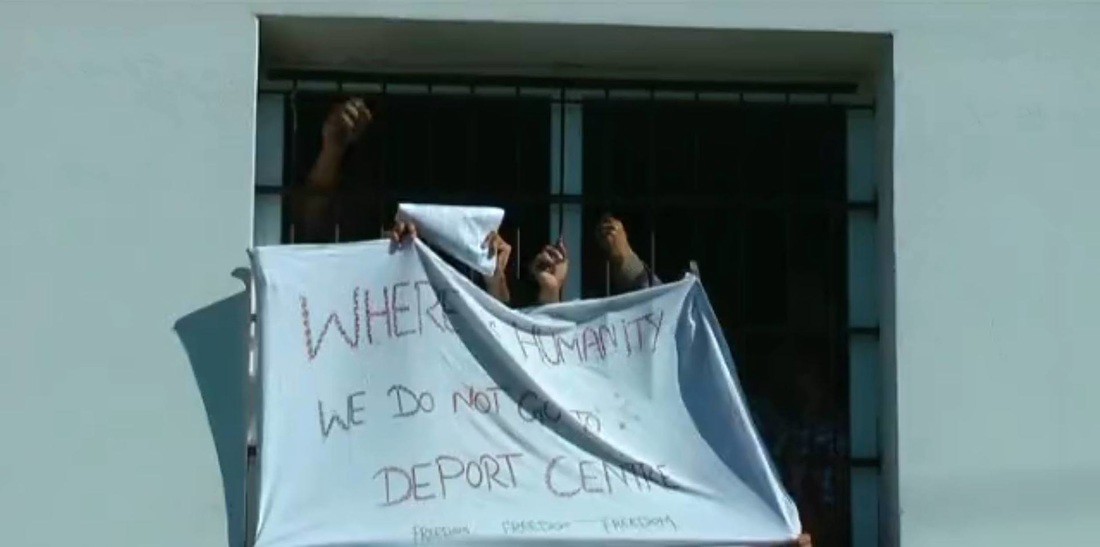 WHERE IS HUMANITY
WE DO NOT GO TO
DEPORT CENTRE
FREEDOM FREEDOM FREEDOM